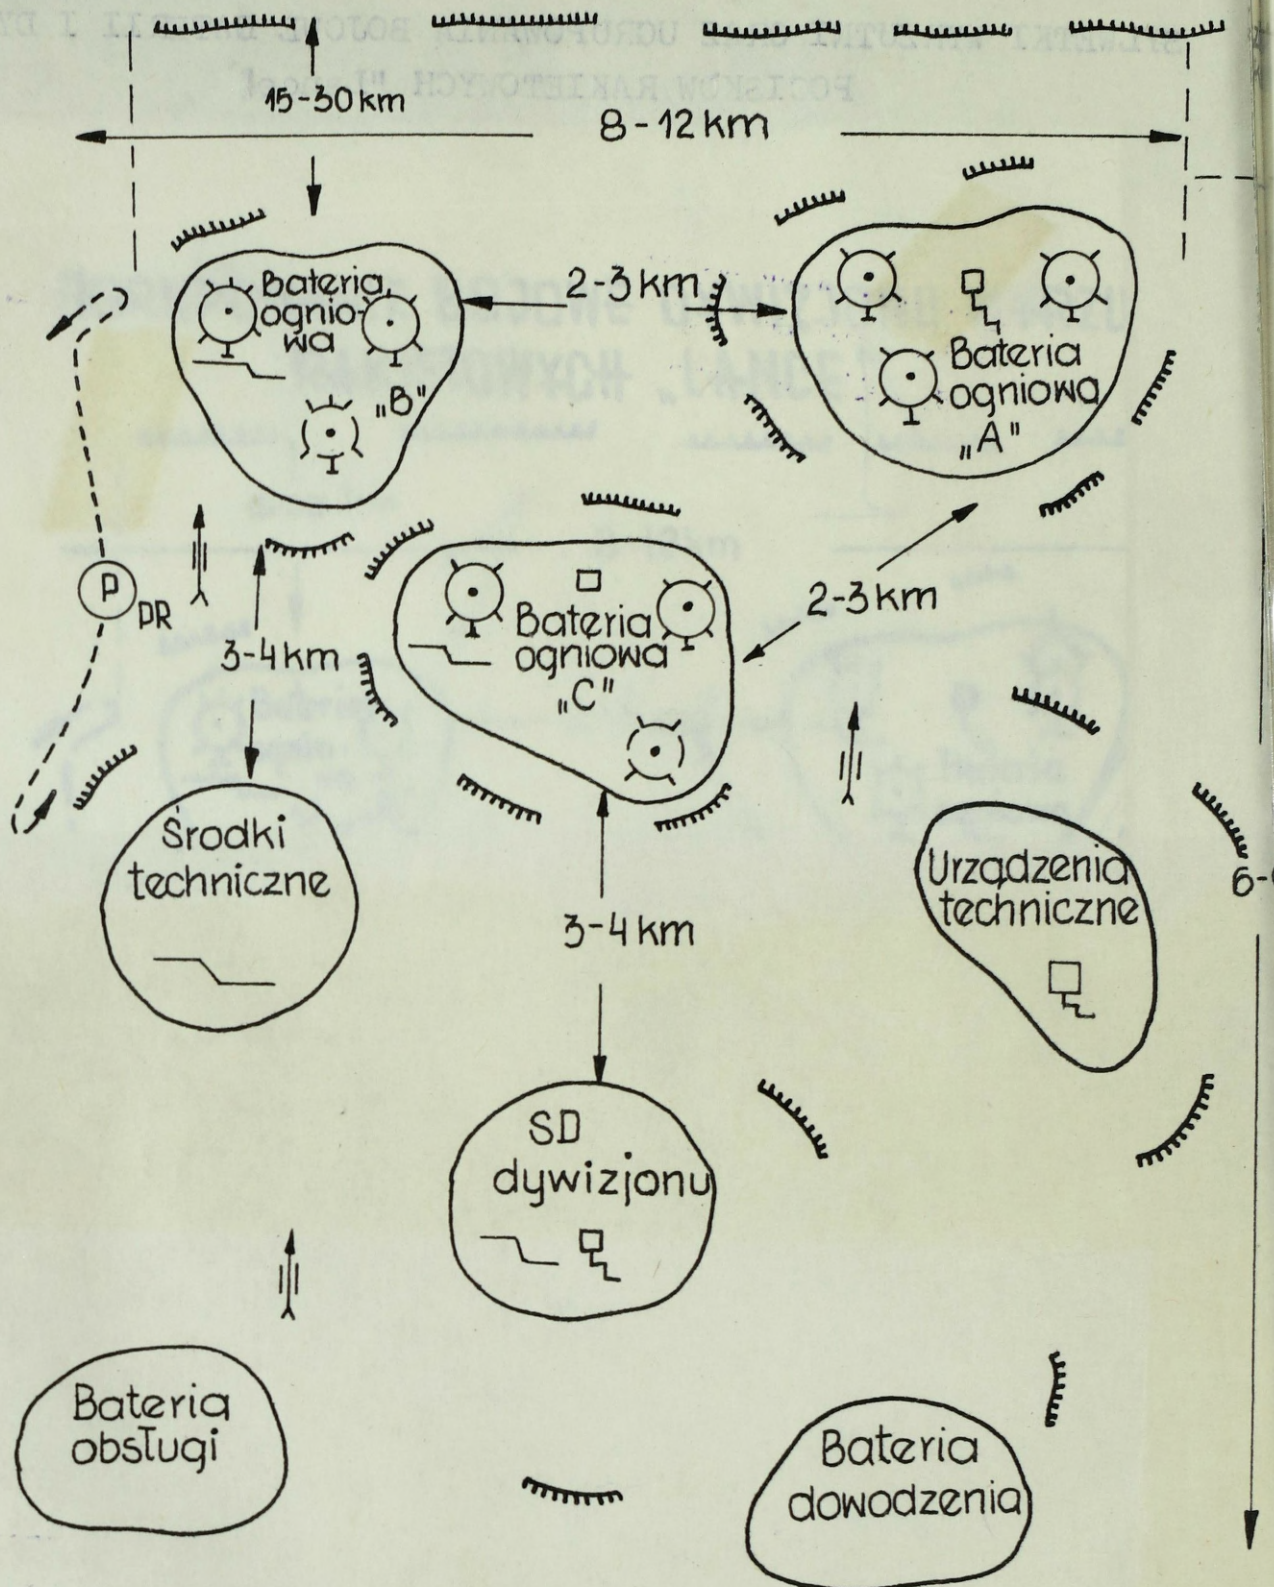 15-30 km
8-12 km
2-3 km
Bateria
ognio-
wa
„B"
Bateria
ogniowa
„A"
P
PR
3-4 km
Bateria
ogniowa
„C"
2-3 km
Środki
techniczne
3-4 km
Urządzenia
techniczne
SD
dywizjonu
Bateria
obsługi
Bateria
dowodzenia